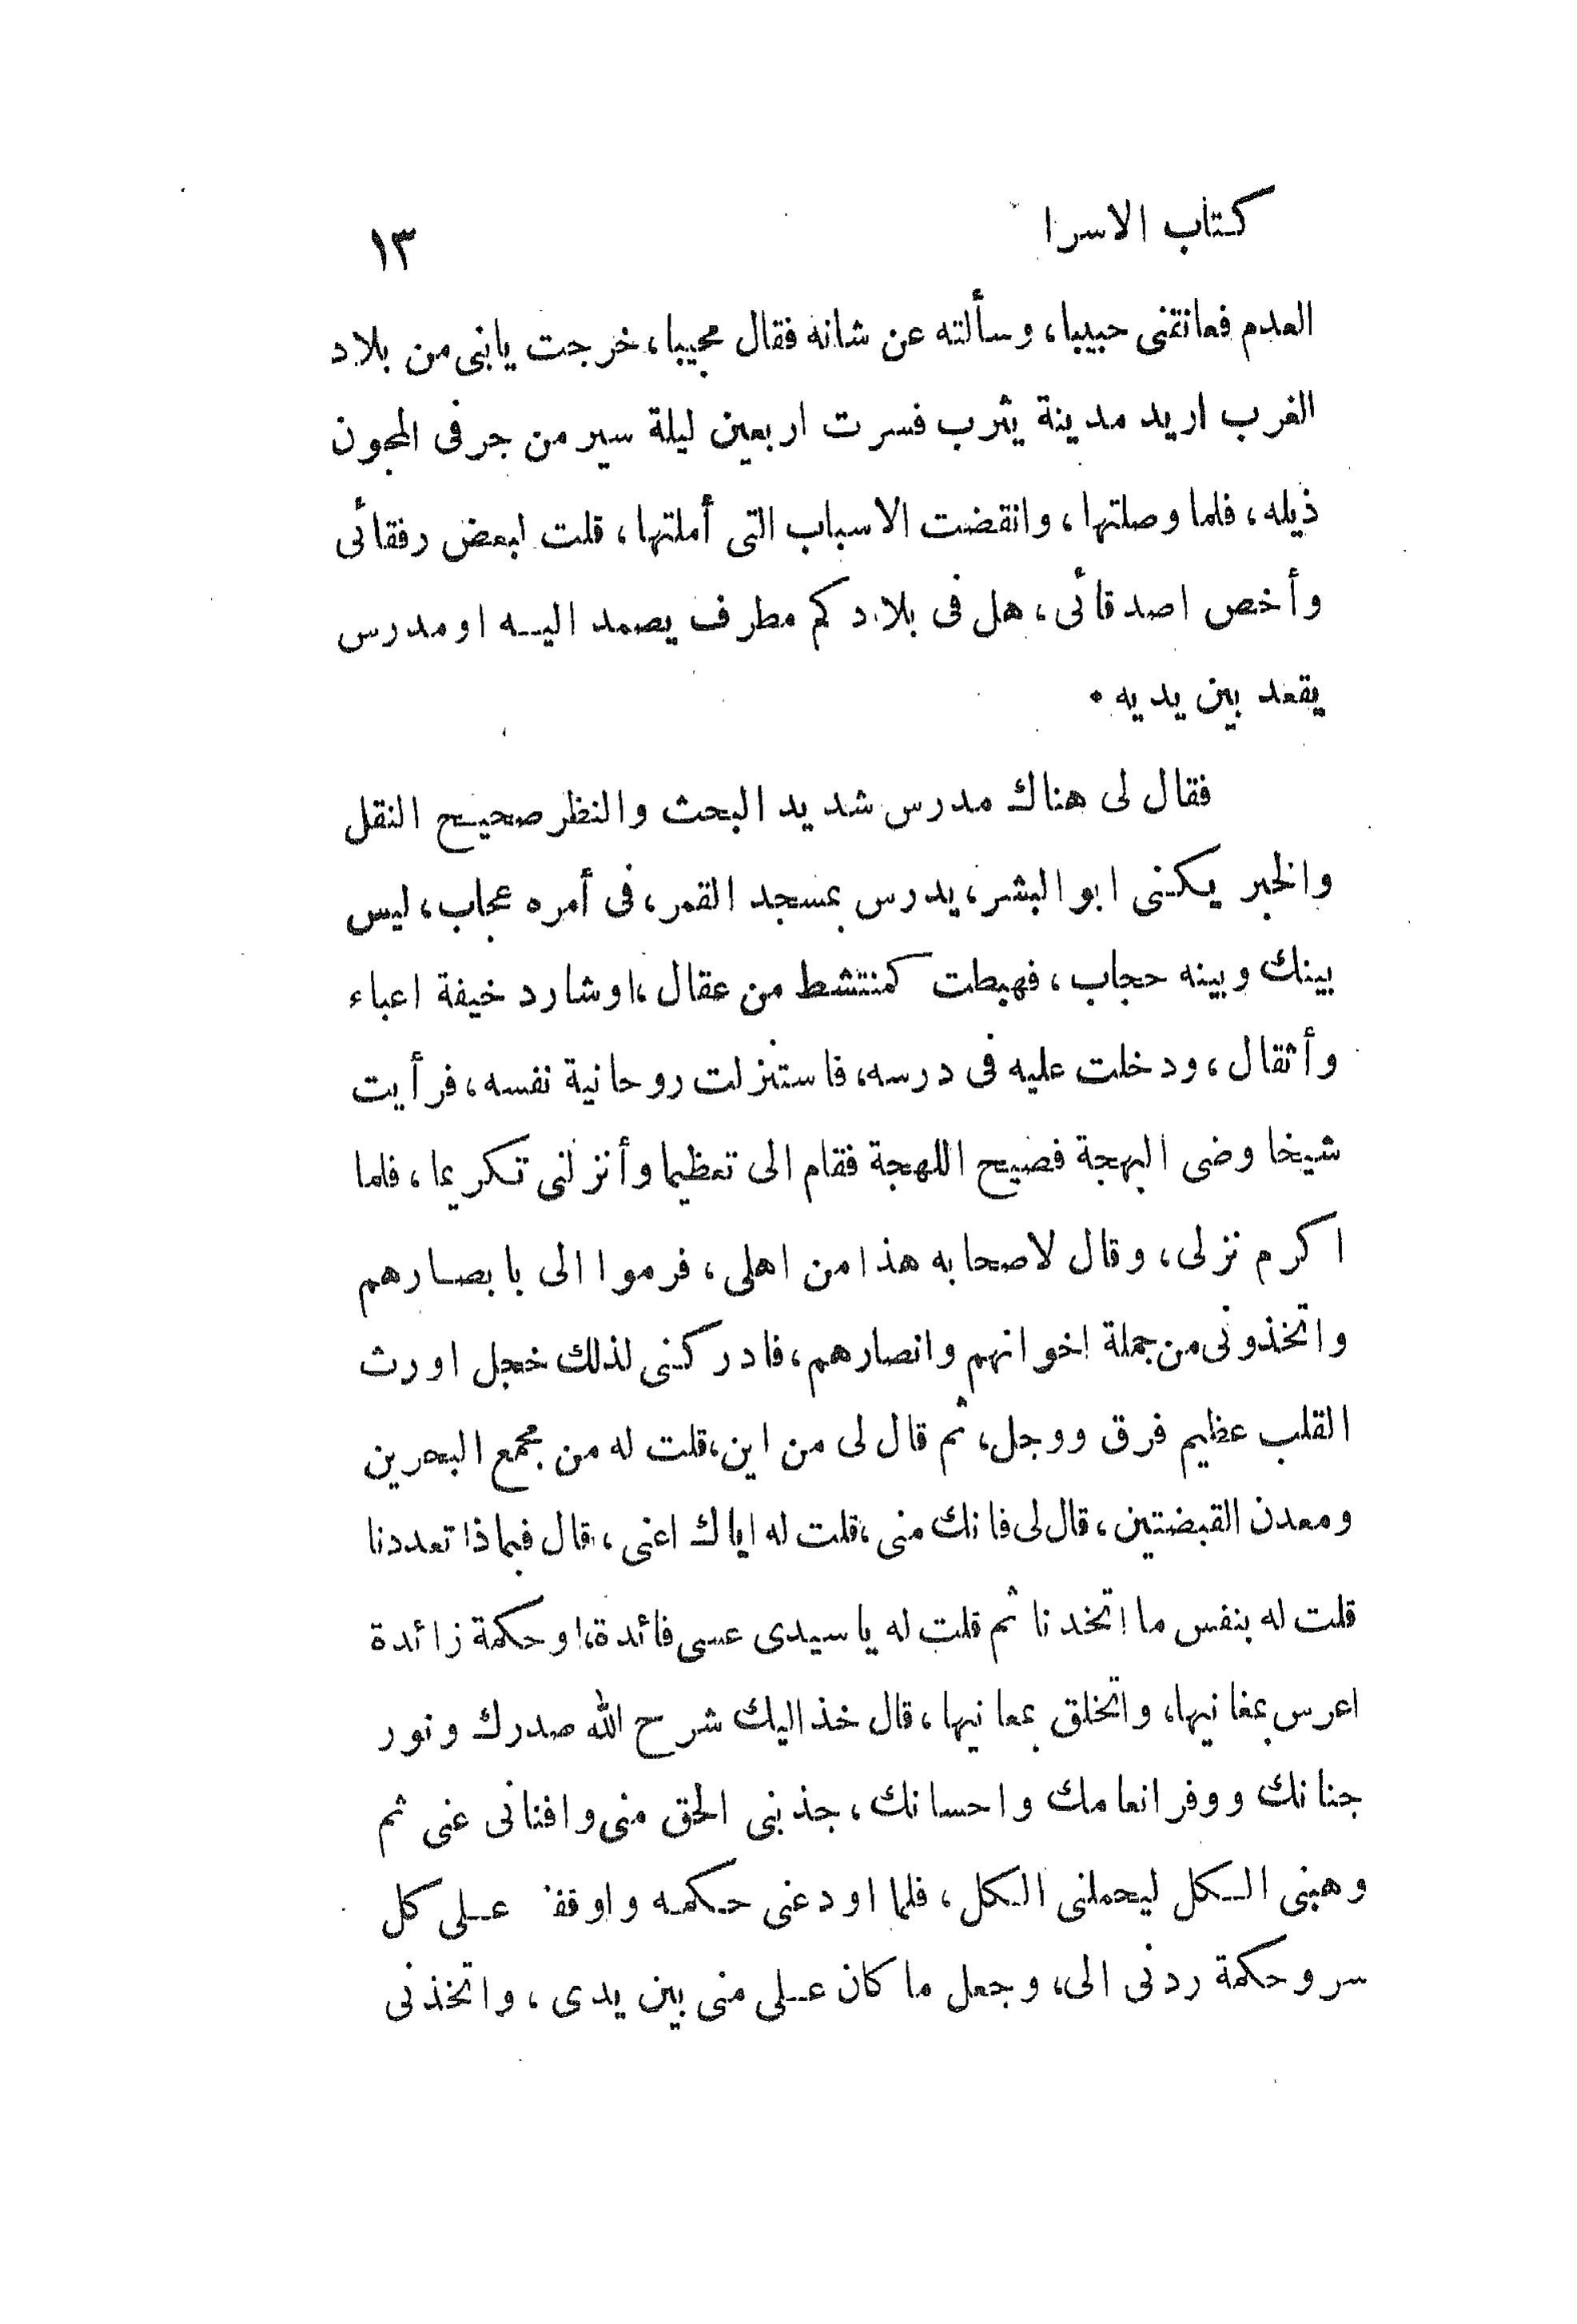 كتاب الاسرا ١٣
العدم فعانقنى حبيبا، وسألته عن شانه فقال مجيبا، خرجت يابنى من بلاد
الغرب اريد مدينة يثرب فسرت اربعين ليلة سير من جر فى المجون
ذيله، فلما وصلتها، وانقضت الاسباب التى أملتها، قلت لبعض رفقائى
وأخص اصدقائى، هل فى بلادكم مطرف يصمد اليه او مدرس
يقعد بين يديه ٠
فقال لى هناك مدرس شديد البحث والنظر صحيح النقل
والخبر يكنى ابو البشر، يدرس بمسجد القمر، فى أمره عجاب، ليس
بينك وبينه حجاب، فهبطت كمنتشط من عقال، اوشارد خيفة اعباء
وأثقال، ودخلت عليه فى درسه، فاستنزلت روحانية نفسه، فرأيت
شيخا وضى البهجة فصيح اللهجة فقام الى تعظيما وأنزلنى تكريما، فلما
اكرم نزلى، وقال لاصحابه هذا من اهلى، فرموا الى بابصارهم
واتخذونى من جملة اخوانهم وانصارهم، فادركنى لذلك خجل اورث
القلب عظيم فرق ووجل، ثم قال لى من اين، قلت له من مجمع البحرين
ومعدن القبضتين، قال لى فانك منى، قلت له اياك اعنى، قال فبماذا تعددنا
قلت له بنفس ما اتخدنا ثم قلت له ياسيدى عسى فائدة، اوحكمة زائدة
اعرس بمغانيها، واتخلق بمعانيها، قال خذ اليك شرح الله صدرك ونور
جنانك ووفر انعامك واحسانك، جذبنى الحق منى وافنانى عنى ثم
وهبنى الكل ليحملنى الكل، فلما اودعنى حكمه واوقف على كل
سر وحكمة ردنى الى، وجعل ما كان على منى بين يدى، واتخذنى